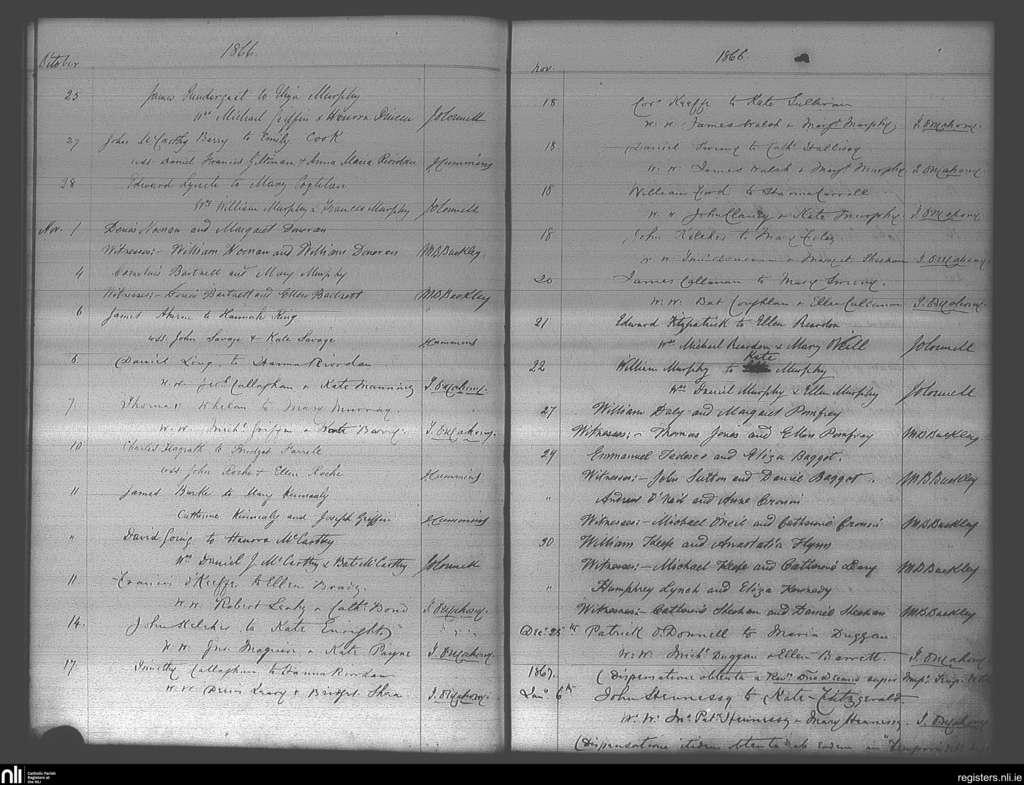 1866.
October
25 James Pendergast to Eliza Murphy
Wss Michael Griffin & Honora J O'Connell
27 John McCarthy Barry to Emily Cook
wss. Daniel Francis Giltinan & Anna Maria Riordan J Cummins
28 Edward Lynch to Mary Coghlan
Wss William Murphy & Frances Murphy J O'Connell
Nov. 1 Denis Nunan and Margaret Donovan
Witnesses:- William Noonan and William Donovan M B Buckley
4 Cornelius Bartnett and Mary Murphy
Witnesses:- Denis Bartnett and Ellen Bartnett M B Buckley
6 James Ahern to Hannah King
wss. John Savage & Kate Savage J Cummins
6 Daniel Ling to Hanna Riordan
W.W. Jno Callaghan & Kate Manning J. O'Mahony.
7. Thomas Whelan to Mary Murray.
W.W. Mich: Griffin & Kate Barry. J. O'Mahony.
10 Charles to Bridget Farrell
wss John Roche & Ellen Roche J Cummins
11 James Burke to Mary Kinnealy
Catherine Kinnealy and Joseph Griffin J Cummins
" David Going to Honora McCarthy
Wss Daniel J McCarthy & Bat McCarthy J O'Connell
11 Francis O'Keeffe to Ellen Brady
W.W. Robert Leahy & Cath: Bond J. O'Mahony.
14. John Kelcher to Kate Enright
W.W. Jno. Magnier & Kate Payne J. O'Mahony
17. Timothy Callaghan to Hanna Riordan
W.W. Denis Leary & Bridget Shea J. O'Mahony.
1866
Nov.
18 Cors Keeffe to Kate Sullivan
W.W. James Walsh & Margt Murphy J. O'Mahony.
18 Daniel to Cath: Hallissy
W.W. James Walsh & Margt Murphy J. O'Mahony.
18 William Cord to Hanna Carroll
W.W. John Clancy & Kate Murphy J. O'Mahony
18 John Kelcher to Mary
W.W. & Margaret Sheehan J. O'Mahony.
20 James Callanan to Mary
W.W. Bat Coughlan & Ellen Callanan J. O'Mahony.
21 Edward Fitzpatrick to Ellen Reardon
Wss Michael Reardon & Mary O'Neill J O'Connell
22 William Murphy to Kate Murphy
Wss Daniel Murphy & Ellen Murphy J O'Connell
27 William Daly and Margaret Pomfrey
Witnesses:- Thomas Jones and Ellen Pomfrey M B Buckley
29 Emmanuel Tedesco and Eliza Baggot.
Witnesses:- John Sutton and Daniel Baggot. M B Buckley
" Andrew O'Neil and Anne Cronin
Witnesses:- Michael Oneil and Catherine Cronin M B Buckley
30 William Keefe and Anastatia Flynn
Witnesses:- Michael Keefe and Catherine Leary M B Buckley
" Humphrey Lynch and Eliza Kennedy
Witnesses:- Catherine Sheehan and Daniel Sheehan M B Buckley
Decr 25th Patrick O'Donnell to Maria Duggan
W.W. Mich: Duggan & Ellen Barrett. J. O'Mahony
1867. (Dispensatione obtenta a Revmo
Jany 6th John Hennessy to Kate Fitzgerald
W.W. Pat: Hennessy & Mary Hennessy. J. O'Mahony
(Dispensatione itidem obtenta ab eodem
nli Catholic Parish Registers at the NLI
registers.nli.ie